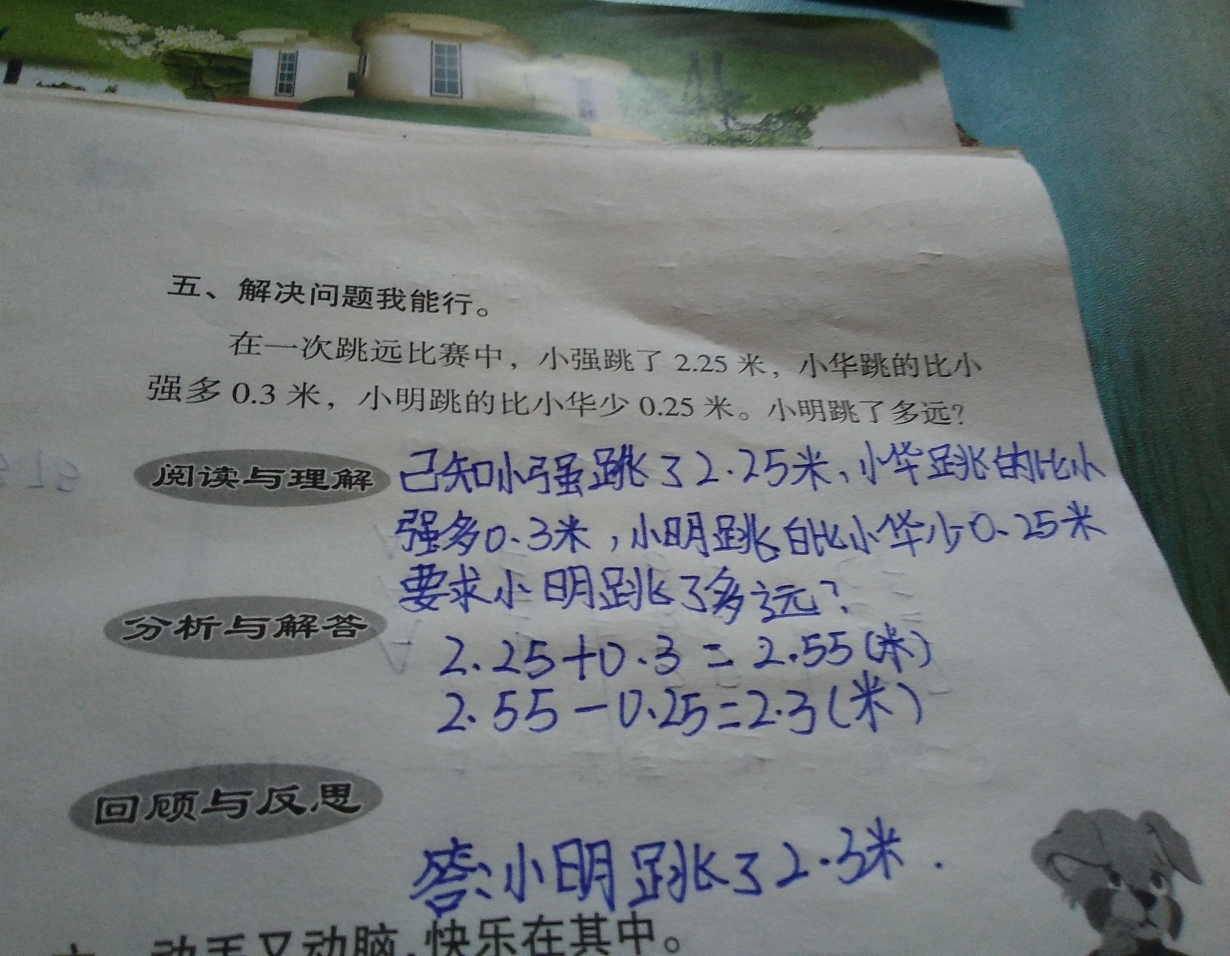 五、解决问题我能行。
在一次跳远比赛中，小强跳了 2.25 米，小华跳的比小
强多 0.3 米，小明跳的比小华少 0.25 米。小明跳了多远？
阅读与理解 已知小强跳了2.25米，小华跳的比小
强多0.3米，小明跳的比小华少0.25米
要求小明跳了多远？
分析与解答
2.25+0.3=2.55(米)
2.55-0.25=2.3(米)
回顾与反思
答：小明跳了2.3米.
动手又动脑，快乐在其中。